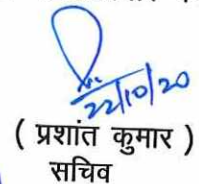 22/10/20
( प्रशांत कुमार )
सचिव